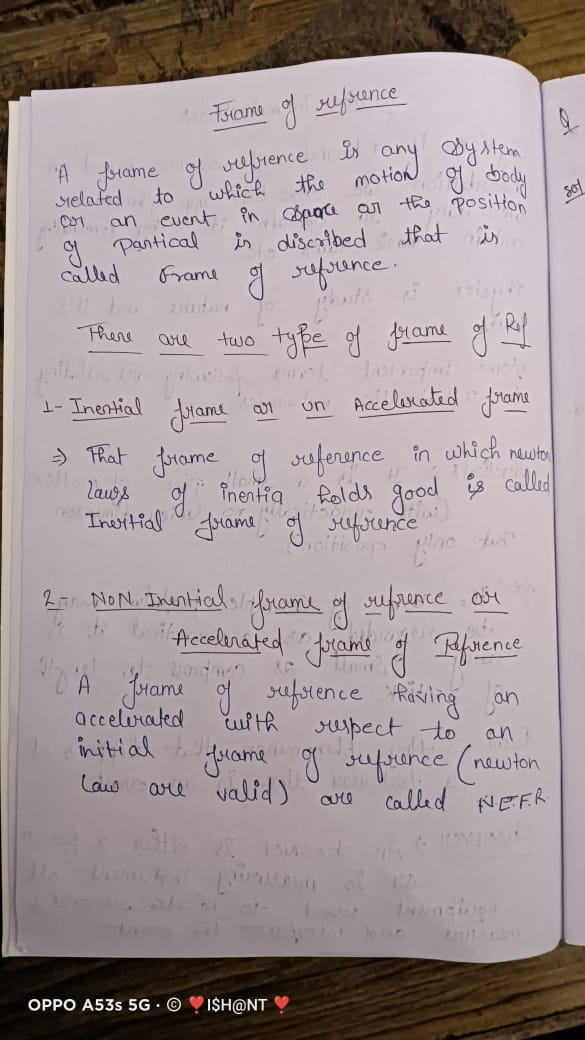 Frame of refrence
A frame of refrence is any System
related to which the motion of body
or an event in space or the position
of Pantical is discribed that is
called Frame of refrence.
There are two type of frame of Ref
1- Inertial frame or un Accelerated frame
⇒ That frame of reference in which newton
Laws of inertia holds good is called
Inertial frame of refrence
2- NoN Inertial frame of refrence or
Accelerated frame of Refrence
A frame of refrence having an
accelerated with respect to an
initial frame of refrence (newton
Law are valid) are called N.E.F.R
Q
sol
OPPO A53s 5G · © ❤️I$H@NT❤️